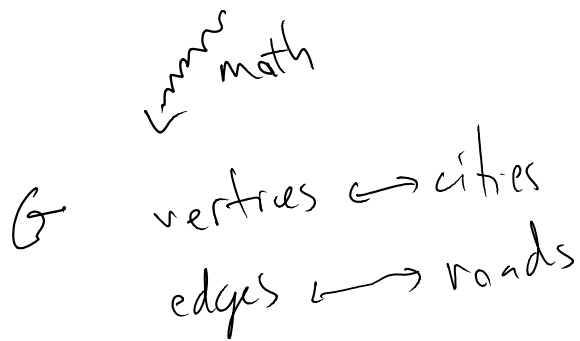 math
G vertices ↔ cities
edges ↔ roads